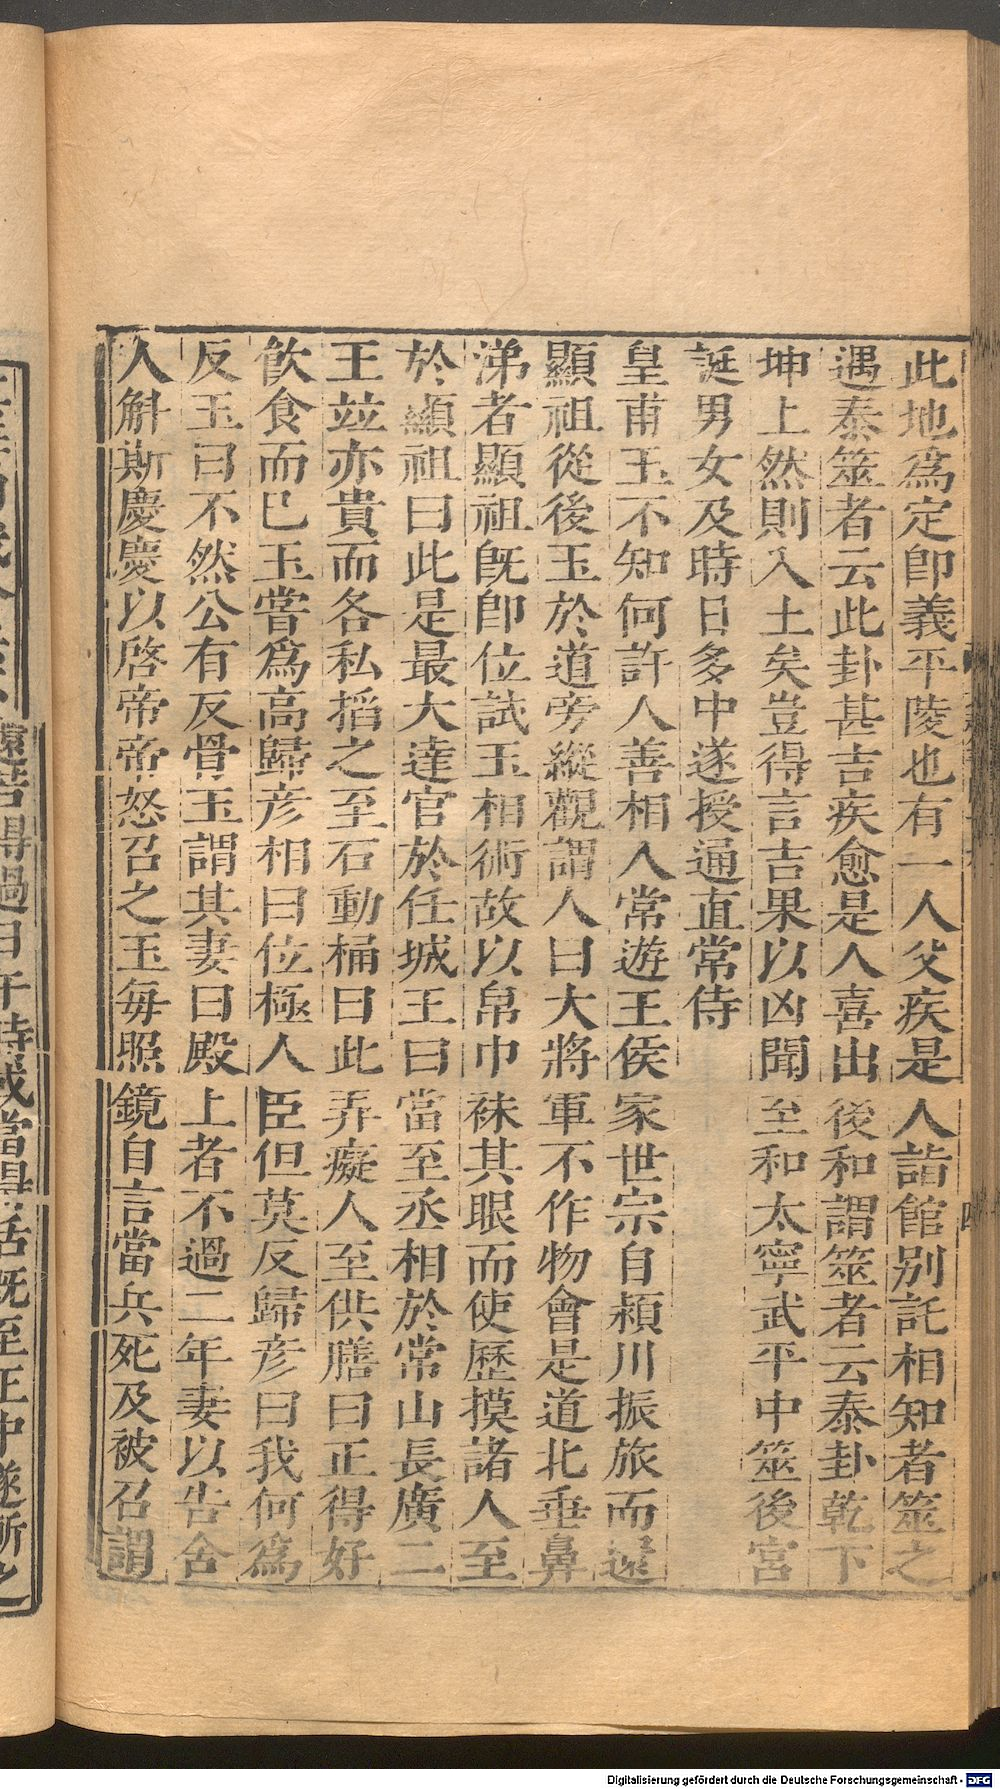 此地爲定卽義平陵也有一人父疾是人詣館别託相知者筮之
遇泰筮者云此卦甚吉疾愈是人喜出後和謂筮者云泰卦乾下
坤上然則入土矣豈得言吉果以凶聞至和太寧武平中筮後宮
誕男女及時日多中遂授通直常侍
皇甫玉不知何許人善相人常遊王侯家世宗自潁川振旅而還
顯祖從後玉於道旁縱觀謂人曰大將軍不作物會是道北垂鼻
涕者顯祖旣卽位試玉相術故以帛巾袜其眼而使歷摸諸人至
於顯祖曰此是最大達官於任城王曰當至丞相於常山長廣二
王竝亦貴而各私掐之至石動桶曰此弄癡人至供膳曰正得好
飮食而巳玉嘗爲高歸彦相曰位極人臣但莫反歸彦曰我何爲
反玉曰不然公有反骨玉謂其妻曰殿上者不過二年妻以告舍
人斛斯慶慶以啓帝帝怒召之玉每照鏡自言當兵死及被召謂
Digitalisierung gefördert durch die Deutsche Forschungsgemeinschaft - DFG